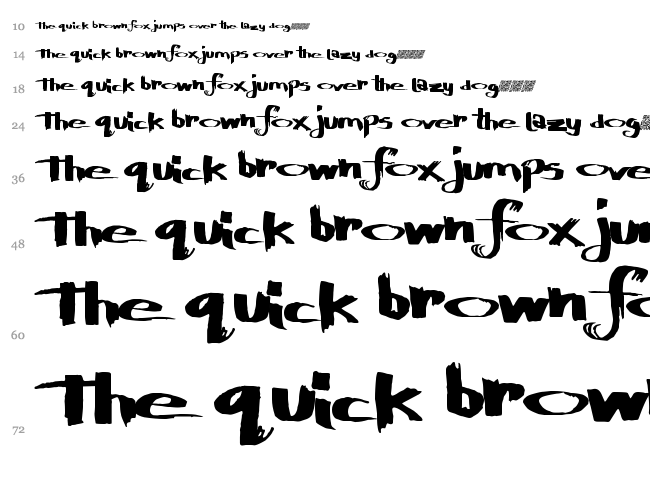 10 The quick brown fox jumps over the lazy dog
14 The quick brown fox jumps over the lazy dog
18 The quick brown fox jumps over the lazy dog
24 The quick brown fox jumps over the lazy dog
36 The quick brown fox jumps ove
48 The quick brown fox jum
60 The quick brown fo
72 The quick brow